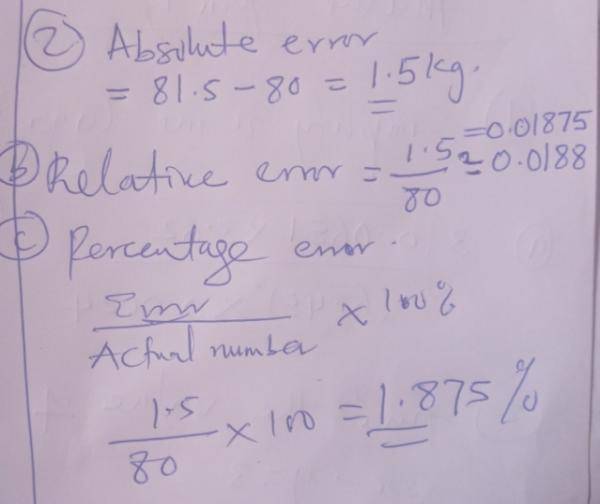 2) Absolute error
= 81.5 - 80 = 1.5kg.
b) Relative error = 1.5/80 = 0.01875
≈ 0.0188
c) Percentage error.
Error/Actual number × 100%
1.5/80 × 100 = 1.875%